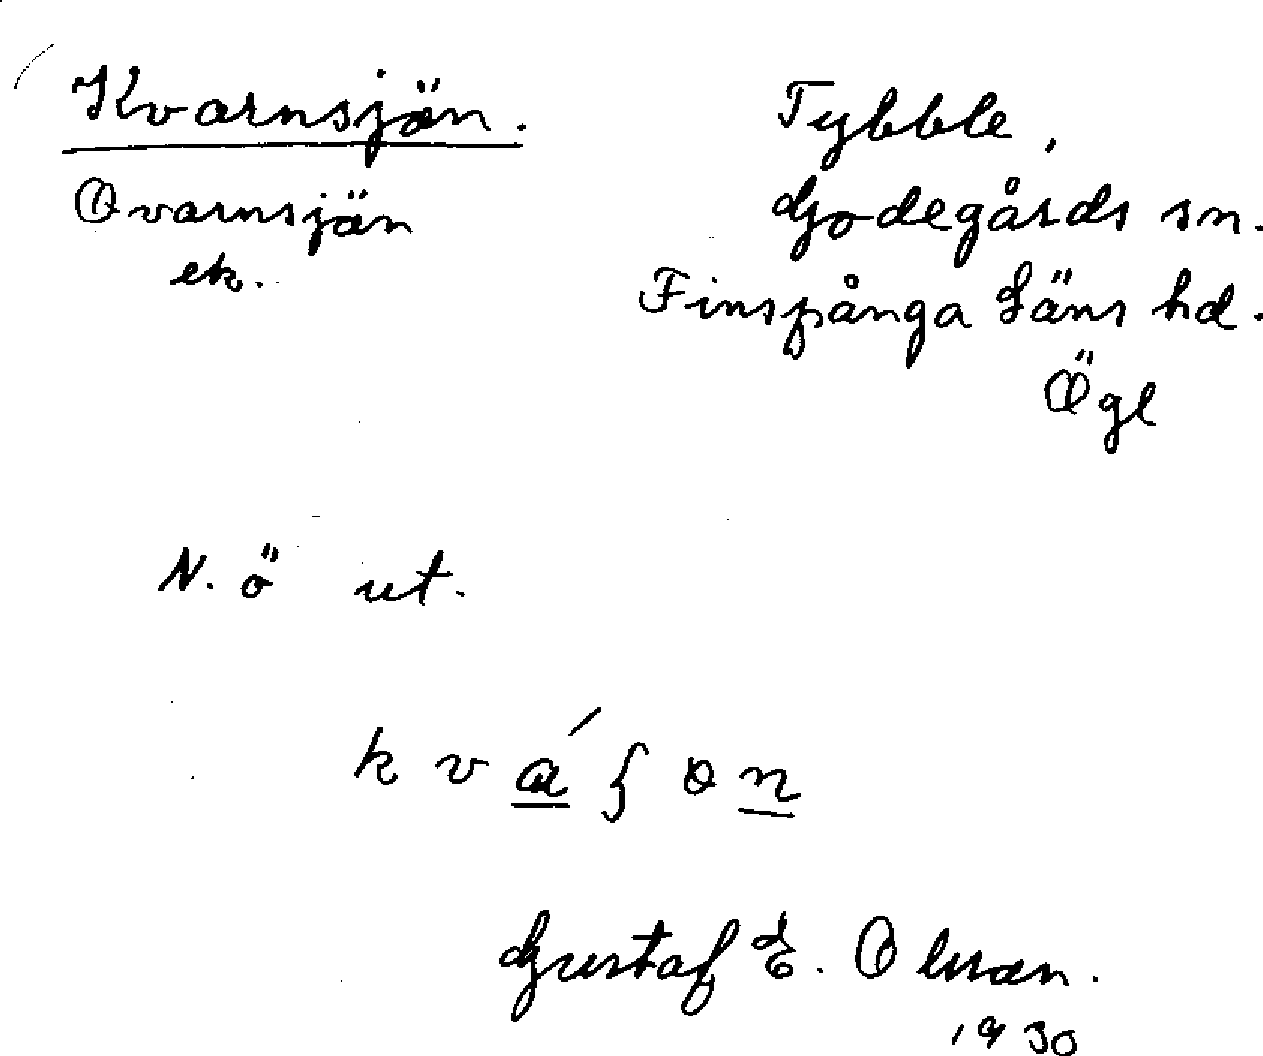 Kvarnsjön.
Qvarnsjön
ek.
Tybble,
Godegårds sn.
Finspånga Läns hd.
Ögl
N. ö ut.
k v á ʃ ɷ n
Gustaf E. Olsson.
1930